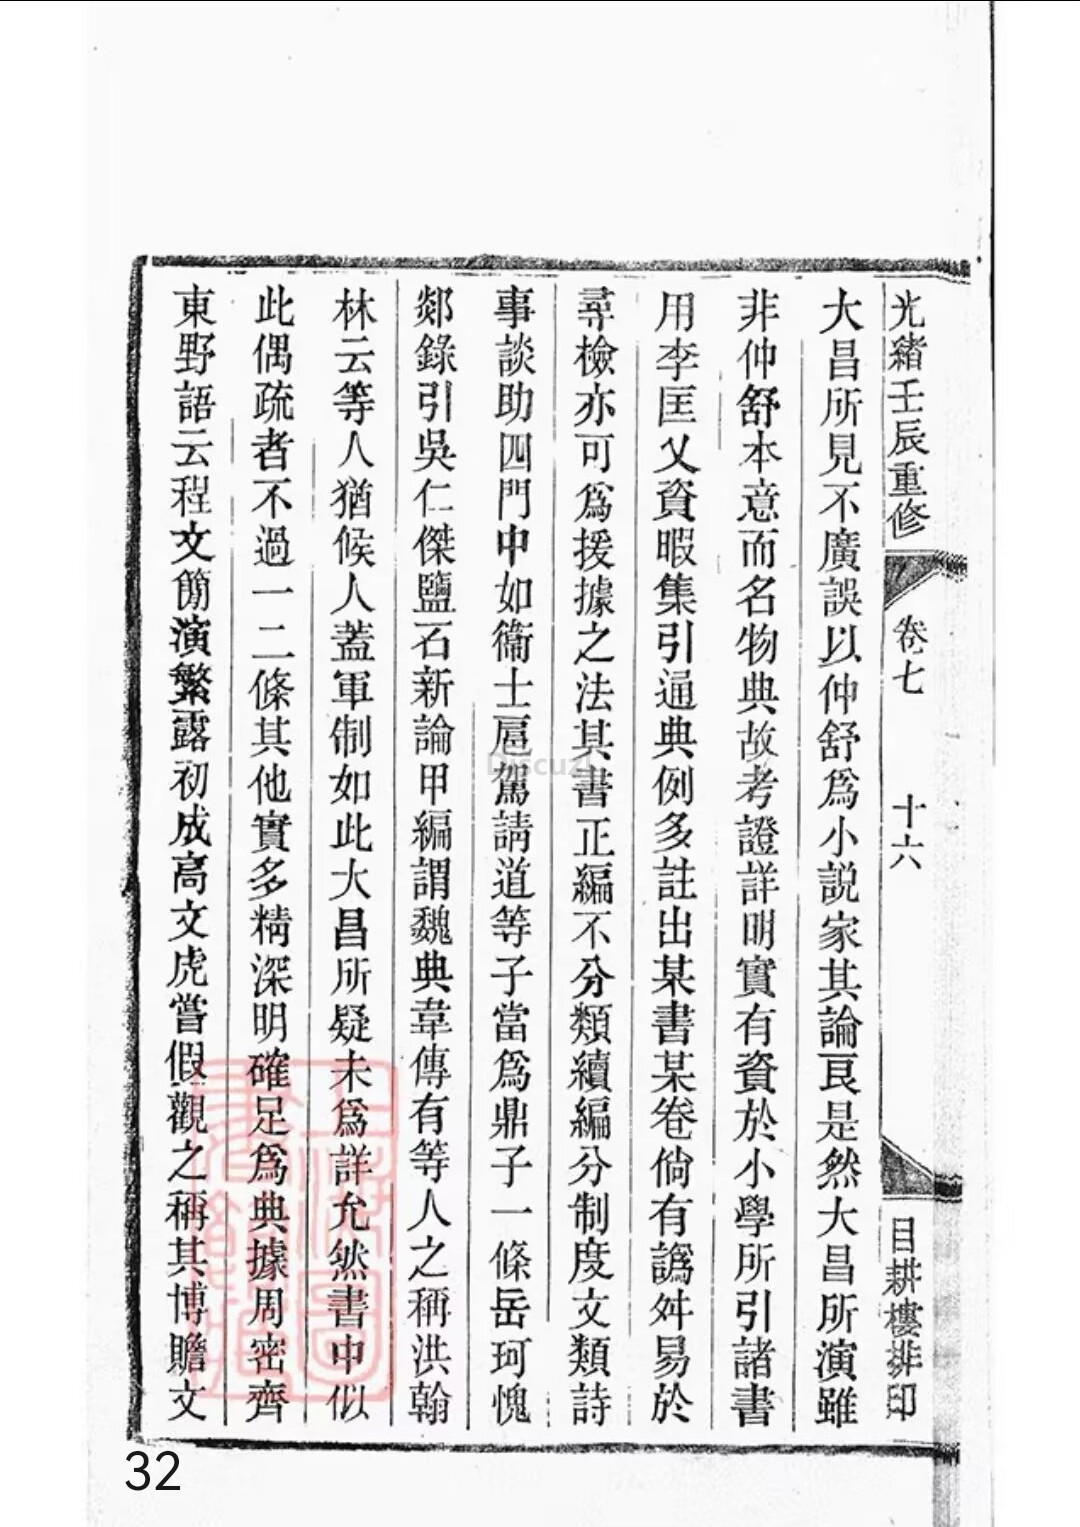 光緒壬辰重修 卷七 十六 目耕樓排印
大昌所見不廣誤以仲舒爲小説家其論良是然大昌所演雖
非仲舒本意而名物典故考證詳明實有資於小學所引諸書
用李匡乂資暇集引通典例多註出某書某卷倘有譌舛易於
尋檢亦可爲援據之法其書正編不分類續編分制度文類詩
事談助四門中如衞士扈駕請道等子當爲鼎子一條岳珂愧
郯錄引吳仁傑鹽石新論甲編謂魏典韋傳有等人之稱洪翰
林云等人猶候人蓋軍制如此大昌所疑未爲詳允然書中似
此偶疏者不過一二條其他實多精深明確足爲典據周密齊
東野語云程文簡演繁露初成高文虎嘗假觀之稱其博贍文
Discuz!
32